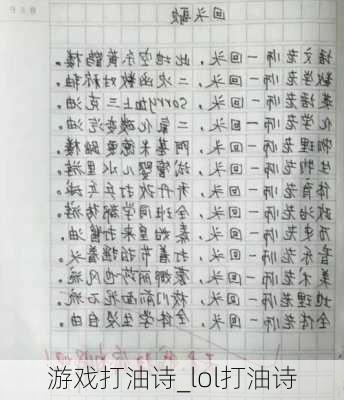 回头歌
语文老师一回头，此地空余黄鹤楼。
数学老师一回头，二次函数对称轴。
英语老师一回头，sorry加上三克油。
化学老师一回头，二氧化碳变汽油。
物理老师一回头，阿基米德要跳楼。
生物老师一回头，试管婴儿水里游。
体育老师一回头，乔丹改打乒乓球。
政治老师一回头，全班同学都
历史老师一回头，秦始皇来打酱油。
音乐老师一回头，着节拍摇着头。
美术老师一回头，蒙娜丽莎也风流。
地理老师一回头，校门前面泥石流。
全体老师一回头，全体学生没自由。
游戏打油诗_lol打油诗